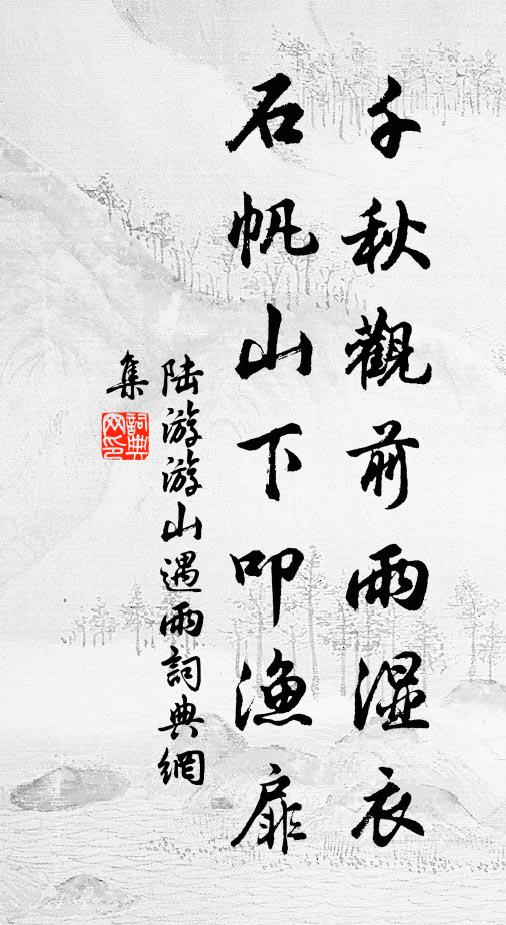 千秋觀前雨濕衣
石帆山下叩漁扉
陆游游山遇雨詞典網
集
詞典
网印